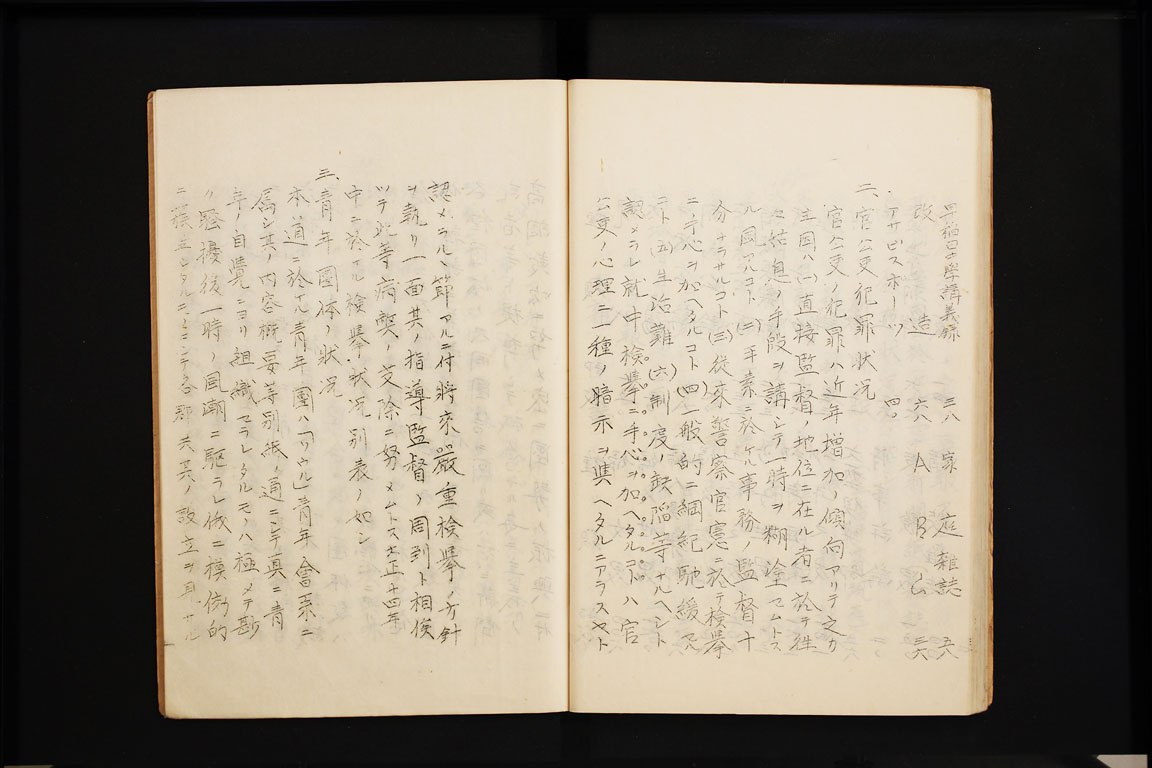 早稲田大學講義録 三八 家庭雑誌 五八
改造 六八 A B C 三六
アサヒスポーツ 四〇
二、官公吏犯罪状況
官公吏ノ犯罪ハ近年増加ノ傾向アリテ之カ
主因ハ(一)直接監督ノ地位ニ在ル者ニ於テ往
々姑息ノ手段ヲ講シテ一時ヲ糊塗セムトス
ル風アルコト(二)平素ニ於ケル事務ノ監督十
分ナラサルコト(三)従來警察官憲ニ於テ検擧
ニ手心ヲ加ヘタルコト(四)一般的ニ綱紀弛緩セル
コト(五)生活難(六)制度ノ缺陥等ナルヘシト
認メラレ就中検擧ニ手心ヲ加ヘタルコトハ官
公吏ノ心理ニ一種ノ暗示ヲ與ヘタルニアラスヤト
認メラルヽ節アルニ付將來嚴重検擧ノ方針
ヲ執リ一面其ノ指導監督ノ周到ト相俟
ツテ此等病弊ノ芟除ニ努メムトス大正十四年
中ニ於ケル検擧状況別表ノ如シ
三、青年團体ノ状況
本道ニ於ケル青年團ハ「ソウル」青年會系ニ
属シ其ノ内容概要等別紙ノ通ニシテ眞ニ青
年ノ自覺ニヨリ組織セラレタルモノハ極メテ尠
ク騒擾後一時ノ風潮ニ駆ラレ徒ニ模倣的
ニ簇立シタルニ
各郡共其ノ設立ヲ見サル